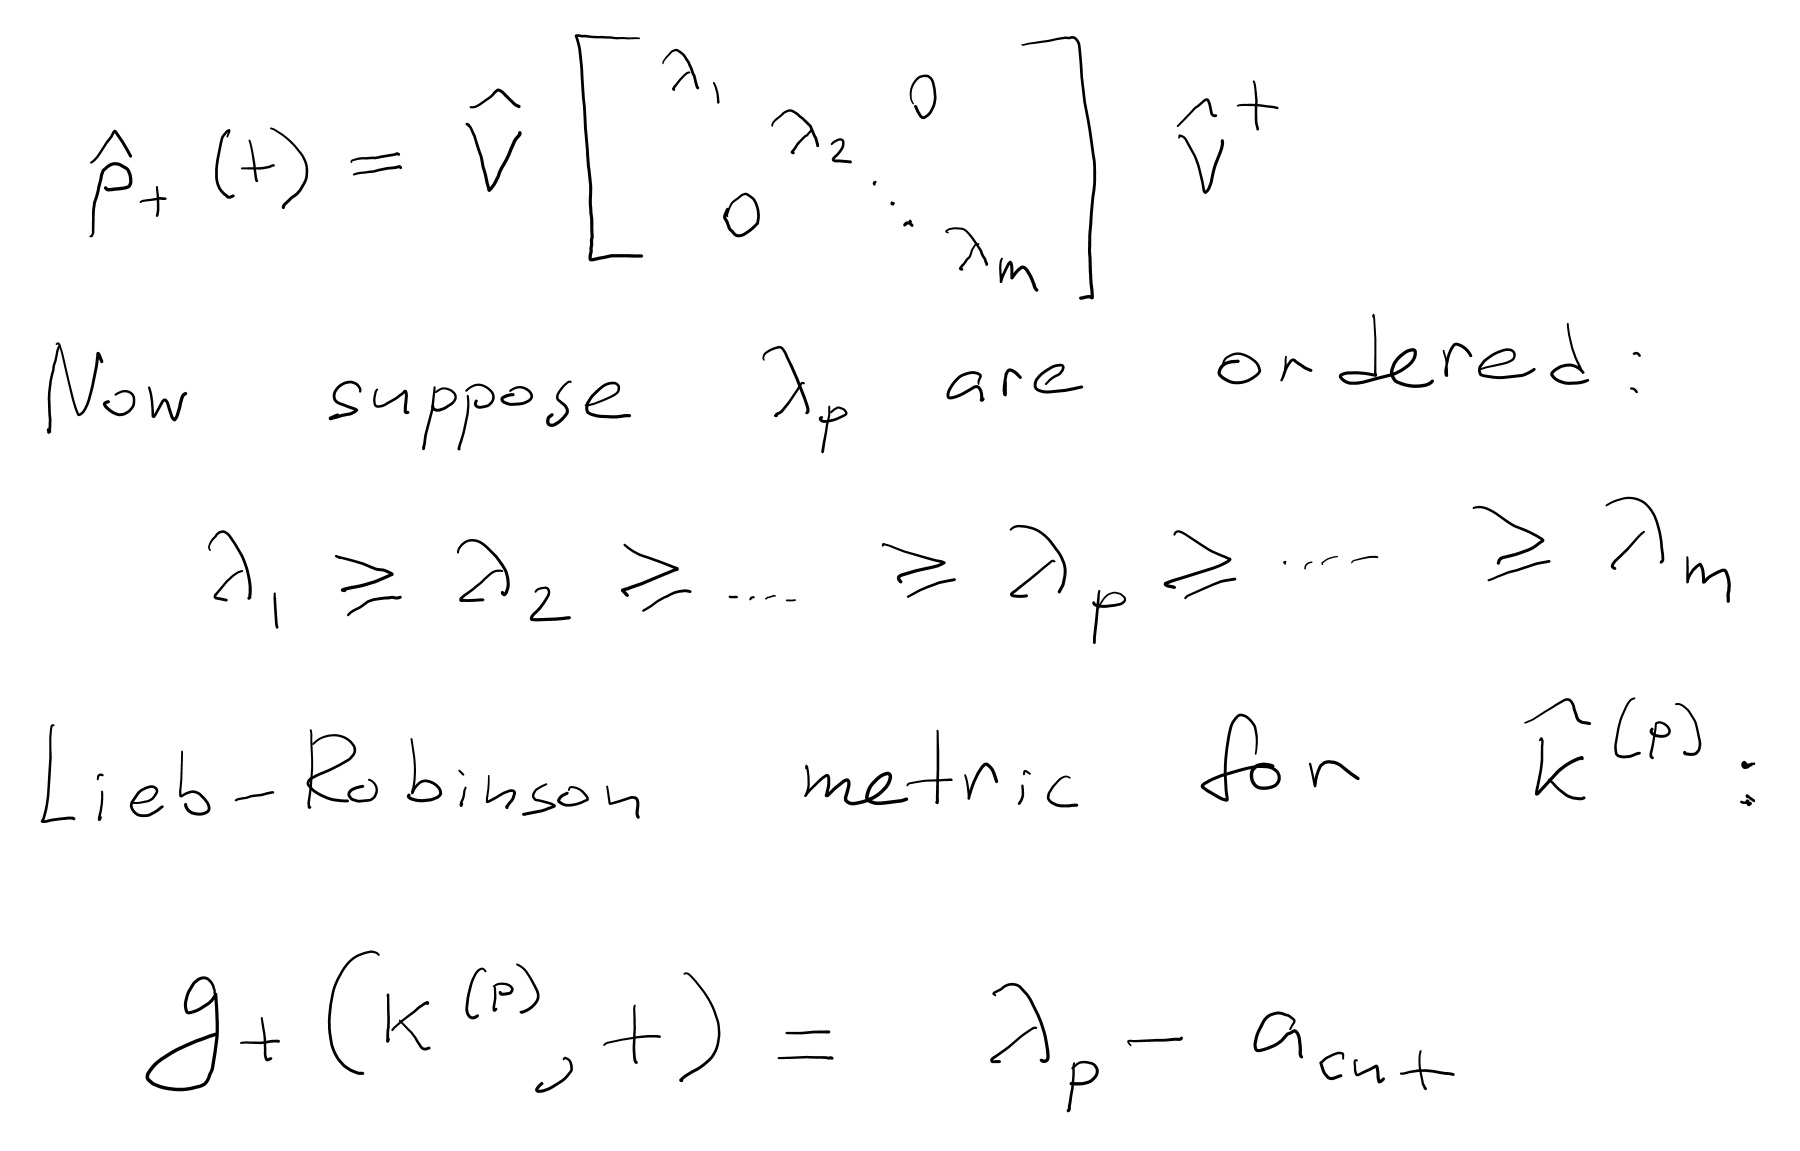 ρ̂₊ (t) = V̂ [ λ₁ λ₂ ⋱ λₘ 0 0 ] V̂⁺
Now suppose λₚ are ordered:
λ₁ ⩾ λ₂ ⩾ .... ⩾ λₚ ⩾ ..... ⩾ λₘ
Lieb-Robinson metric for κ̂⁽ᵖ⁾:
g₊ (κ⁽ᵖ⁾, t) = λₚ - a_cut